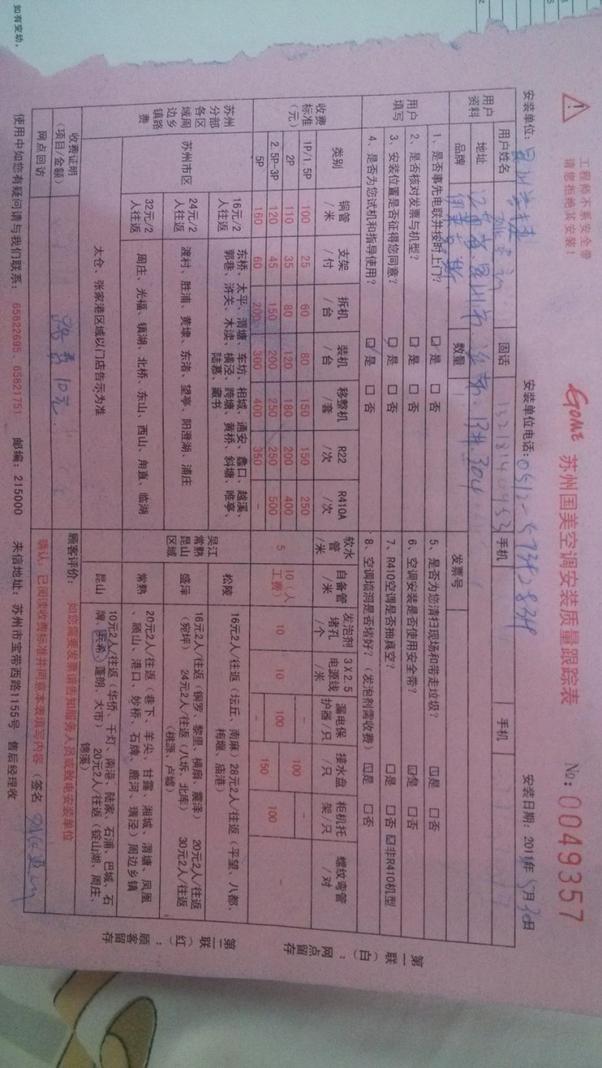 如有变动，
工程师不系安全带
请您拒绝其安装！
GOME 苏州国美空调安装质量跟踪表
No: 0049357
安装单位：
安装单位电话：0512-57342834
安装日期：2011年5月30日
用户资料
用户姓名
固话
手机
手机
地址
品牌
数量
发票号
用户填写
1、是否事先电联并按时上门？ ☑是 □否
5、是否为您清扫现场和带走垃圾？ ☑是 □否
2、是否核对发票与机型？ ☑是 □否
6、空调安装是否使用安全带？ ☑是 □否
3、安装位置是否征得您同意？ ☑是 □否
7、R410空调是否抽真空？ □是 □否 ☑非R410机型
4、是否为您试机和指导使用？ ☑是 □否
8、空调墙洞是否堵好？（发泡剂需收费） ☑是 □否
收费标准（元）
类别 铜管/米 支架/付 拆机/台 装机/台 移整机/套 R22/次 R410A/次 软水管/米 自备管/米 发泡剂堵孔/个 3×2.5电源线/米 漏电保护器/只 接水盘/只 柜机托架/只 螺纹弯管/对
1P/1.5P 100 25 60 80 150 150 250 5 10（人工费） 10 10 - 100 - -
2P 110 35 80 120 180 200 400 100
2.5P-3P 120 45 150 200 250 250 500 100
5P 160 60 200 300 400 350 - - 150
苏州分部各区域周边乡镇路费
苏州市区
16元/2人往返
东桥、太平、渭塘、车坊、相城、通安、蠡口、越溪、郭巷、浒关、木渎、横泾、跨塘、黄桥、斜塘、唯亭、陆慕、藏书
24元/2人往返
渡村、胜浦、黄埭、东渚、望亭、阳澄湖、浦庄
32元/2人往返
周庄、光福、镇湖、北桥、东山、西山、甪直、临湖
太仓、张家港区域以门店告示为准
吴江常熟昆山区域
松陵
16元2人/往返（坛丘、南麻）28元2人/往返（平望、八都、梅堰、庙港）
盛泽（宛坪）
16元2人/往返（铜罗、黎里、横扇、震泽） 20元2人/往返
24元2人/往返（八坼、北厍） 30元2人/往返（桃源、芦墟）
常熟
20元2人/往返（巷下、羊尖、甘露、湘城、渭塘、凤凰
顾山、港口、妙桥、石牌、鹿河、璜泾）周边乡镇
昆山
10元2人/往返（华侨、千灯、南港、陆家、石浦、巴城、石牌、兵希、蓬朗、大市） 20元2人/往返（锭山湖、周庄、锦溪）
收费证明（项目/金额）
路费10元
顾客评价：
如您需要发票请告知服务人员或致电安装单位
网点回访
确认：已阅读收费标准并同意本表填写内容（签名
使用中如您有疑问请与我们联系：65622695、65821751 邮编：215000 来信地址：苏州市宝带西路1155号 售后经理收
第一联（白）：网点留存
第二联（红）：顾客留存